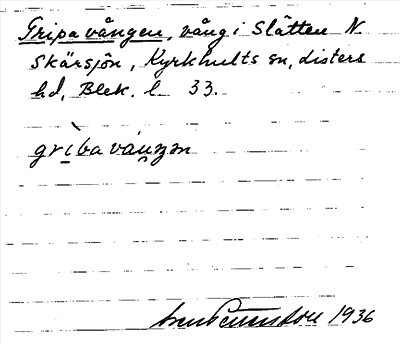 Gripavången, vång i Slätten N.
Skärsjön, Kyrkhults sn, Listers
hd, Blek. l. 33.
grìbaváŋən
1936